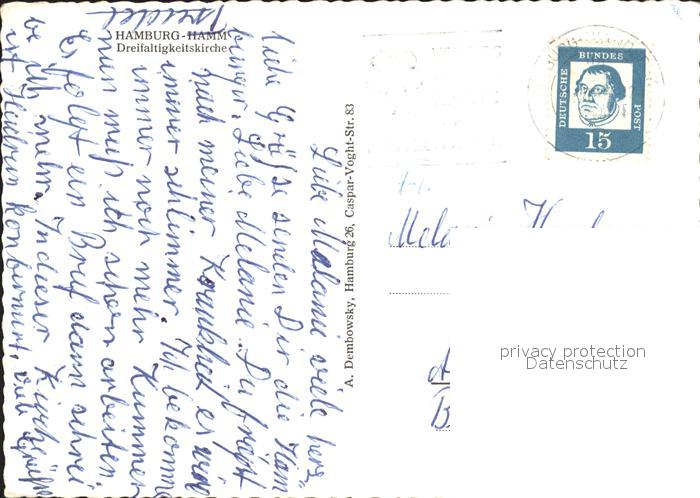 HAMBURG-HAMM
Dreifaltigkeitskirche
Liebe Melanie viele herz
liche Grüße senden Dir die Ham
burger. Liebe Melanie. Du frägst
nach meiner Krankheit es wird
immer schlimmer. Ich bekomm
immer noch mehr Kummer
nun muß ich schon arbeiten
Es folgt ein Brief dann schrei
be ich mehr. In dieser Kirche
ist Heidrun konfirmirt. viele Grüße
A. Dembowsky, Hamburg 26, Caspar-Voght-Str. 83
DEUTSCHE BUNDES POST
15
privacy protection
Datenschutz